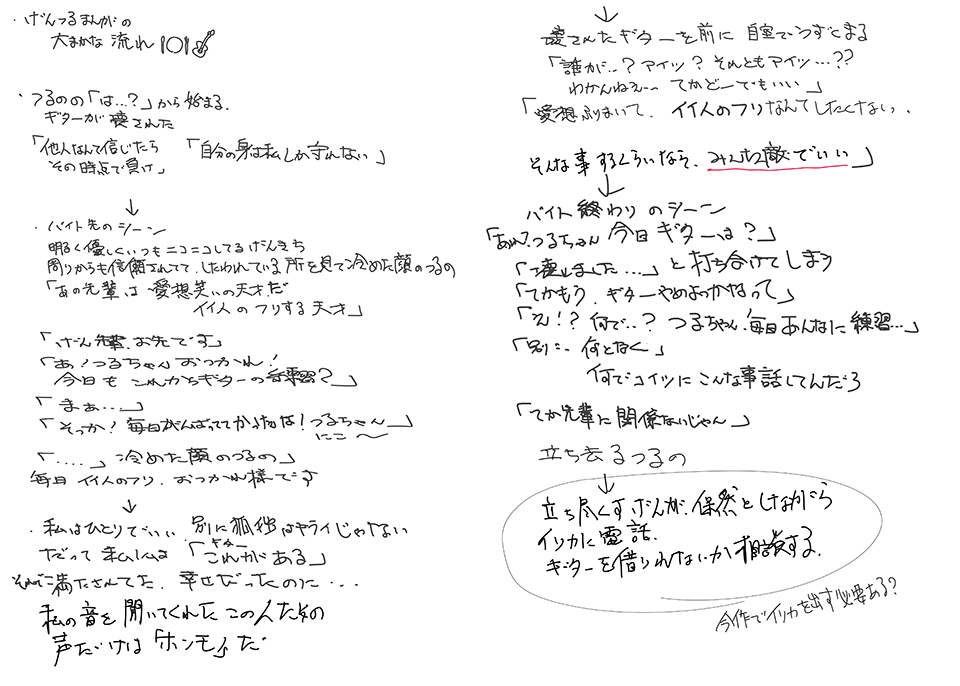 ・げんつるまんがの
大まかな流れ
・つるのの「は…?」から始まる.
ギターが壊された
「他人なんて信じたら
その時点で負け」
「自分の身は私しか守れない」
↓
・バイト先のシーン
明るく優しくいつもニコニコしてるげんきち
周りからも信頼されてて、したわれている所を見て冷めた顔のつるの
「あの先輩は愛想笑いの天才だ
イイ人のフリする天才」
「げん先輩お先です」
「あ!つるちゃんおつかれ!
今日もこれからギターの練習?」
「まぁ…」
「そっか!毎日がんばっててかっけーな!つるちゃん」
にこ〜
「‥‥」冷めた顔のつるの」
毎日イイ人のフリ、おつかれ様です
↓
・私はひとりでいい 別に孤独はキライじゃない
ギター
だって私には「これがある」
それで満たされてた、幸せだったのに・・・
私の音を聞いてくれたこの人たちの
声だけは「ホンモノ」だ
↓
壊されたギターを前に自室でうずくまる
「誰が…?アイツ?それともアイツ…??
わかんねぇ…てかどーでもいい」
「愛想ふりまいて、イイ人のフリなんてしたくない、
そんな事するくらいなら、みんな敵でいい」
↓
バイト終わりのシーン
「あれ?つるちゃん今日ギターは?」
「壊れました…」と打ち合けてしまう
「てかもう、ギターやめよっかなって」
「え!?何で‥?つるちゃん毎日あんなに練習…」
「別に‥何となく」
何でコイツにこんな事話してんだろ
「てか先輩に関係ないじゃん」
立ち去るつるの
↓
立ち尽くすげんが、保然としながら
イリカに電話.
ギターを借りれないか相談する.
今作でイリカを出す必要ある?